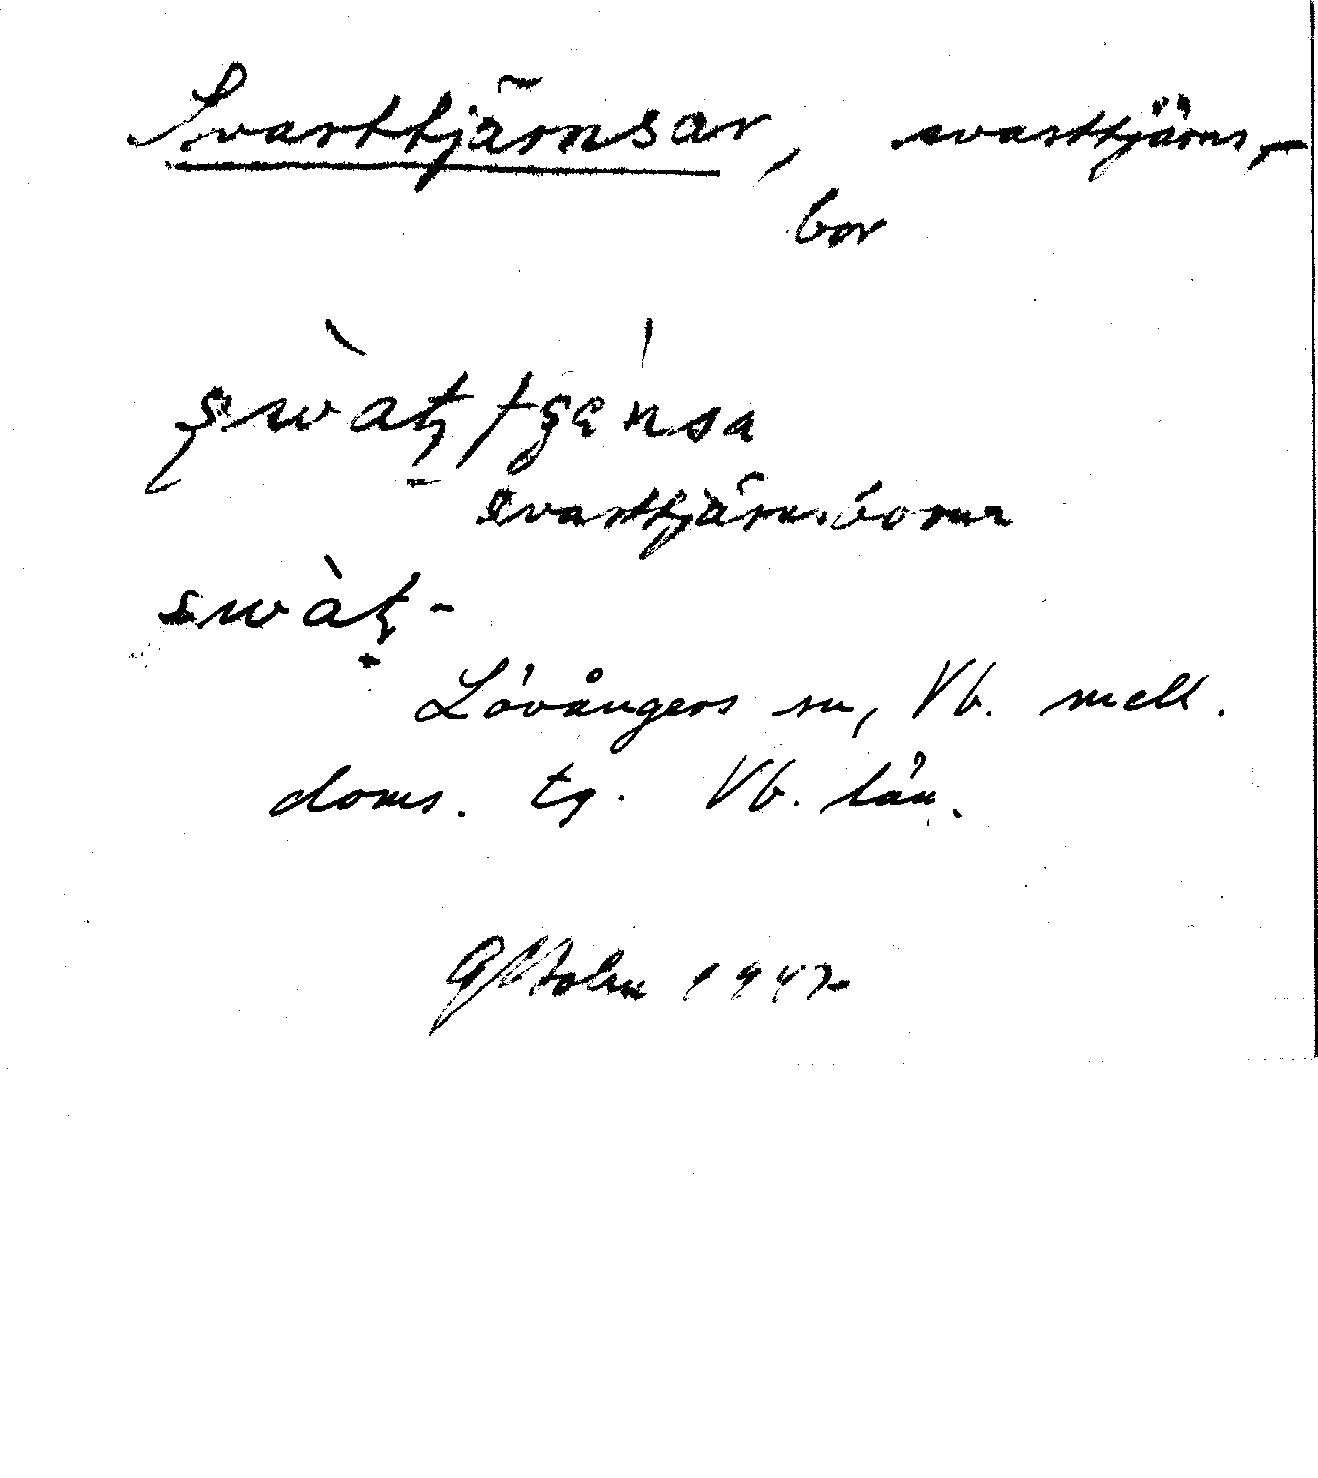 Svarttjärnsar, svarttjärns-
bor
svarttjärnsborna
swàt-
Lövångers sn, Vb. mell.
doms. tg. Vb. län.
Holm 1947